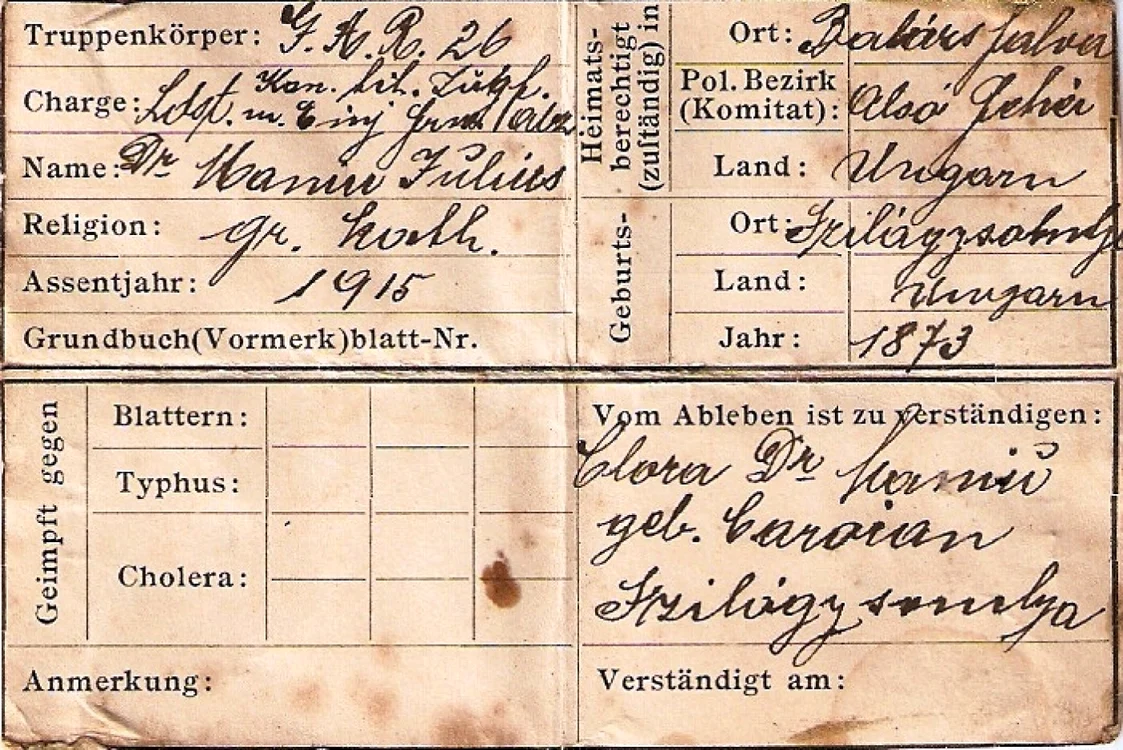 Truppenkörper: F. A. R. 26
Kan. tit. Zugsf.
Charge: Ldst. m. Einj
Name: Dr Maniu Julius
Religion: gr. kath.
Assentjahr: 1915
Grundbuch(Vormerk)blatt-Nr.
Heimats-
berechtigt
(zuſtändig) in
Ort: Balázsfalva
Pol. Bezirk
(Komitat): Alsó Fehér
Land: Ungarn
Geburts-
Ort: Szilágysomlyó
Land: Ungarn
Jahr: 1873
Geimpft gegen
Blattern:
Typhus:
Cholera:
Anmerkung:
Vom Ableben iſt zu verſtändigen:
Clara Dr Maniu
geb. Coroian
Szilágysomlyo
Verſtändigt am: